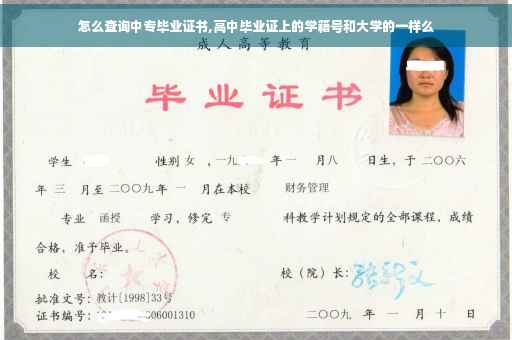 怎么查询中专毕业证书,高中毕业证上的学藉号和大学的一样么
成人高等教育
毕业证书
学生 性别 女 ,一九 年一 月八 日生,于二〇〇六
年 三 月至二〇〇九年 一 月在本校 财务管理
专业 函授 学习,修完 专 科教学计划规定的全部课程,成绩
合格,准予毕业。
校 名: 校(院)长:
批准文号:教计[1998]33号
证书编号: 06001310 二〇〇九 年 一 月 十 日